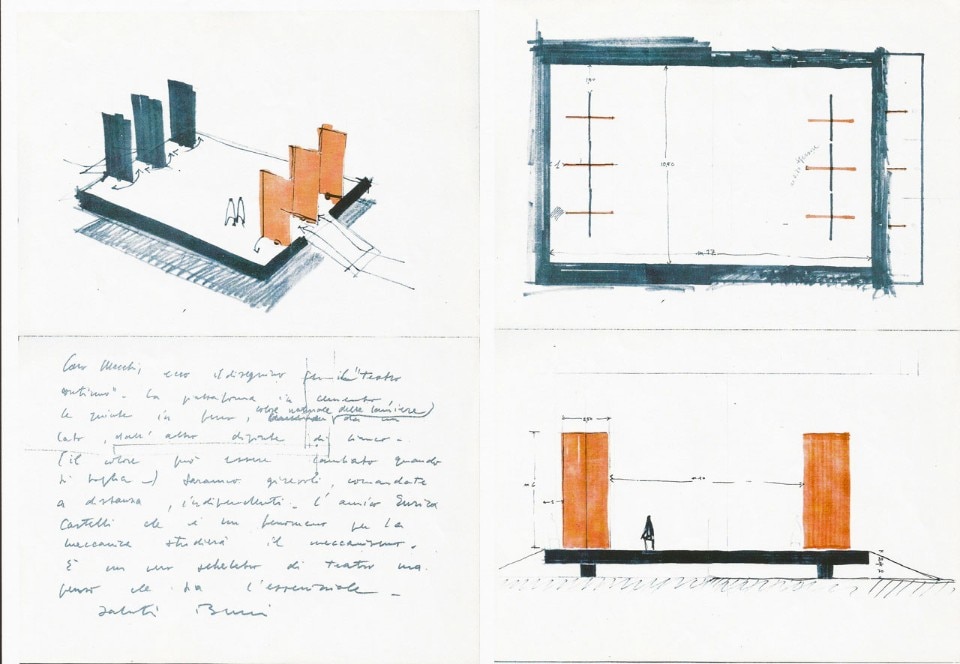 Caro Macchi, ecco il disegnino per il "teatro
continuo". La piattaforma in cemento
le quinte in ferro, (colore naturale delle lamiere) da un
lato, dall'altro dipinte di bianco -
(il colore può essere cambiato quando
si voglia -) saranno girevoli, comandate
a distanza, indipendenti. L'amico Enrico
Castelli che è un fenomeno per la
meccanica studierà il meccanismo.
È un vero scheletro di teatro ma
penso che ha l'essenziale -
saluti Burri
10,50